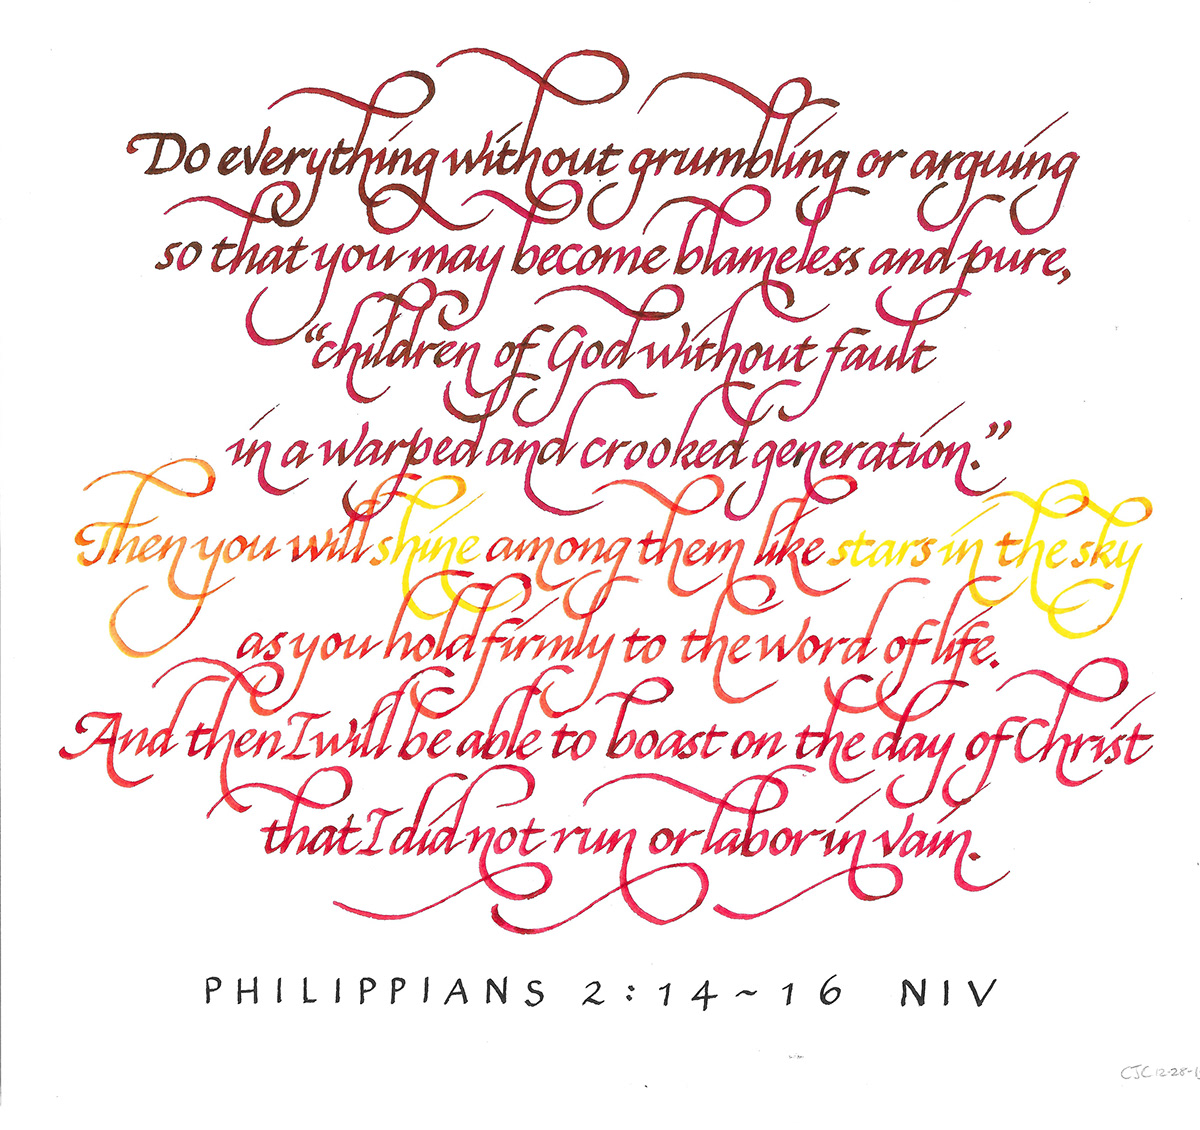 Do everything without grumbling or arguing
so that you may become blameless and pure,
“children of God without fault
in a warped and crooked generation.”
Then you will shine among them like stars in the sky
as you hold firmly to the word of life.
And then I will be able to boast on the day of Christ
that I did not run or labor in vain.
PHILIPPIANS 2:14~16 NIV
CJC 12-28-1